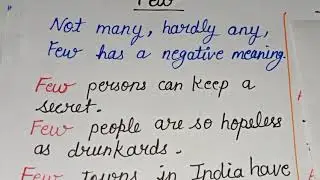 Few
Not many, hardly any,
Few has a negative meaning.
Few persons can keep a
secret.
Few people are so hopeless
as drunkards.
Few towns in India have